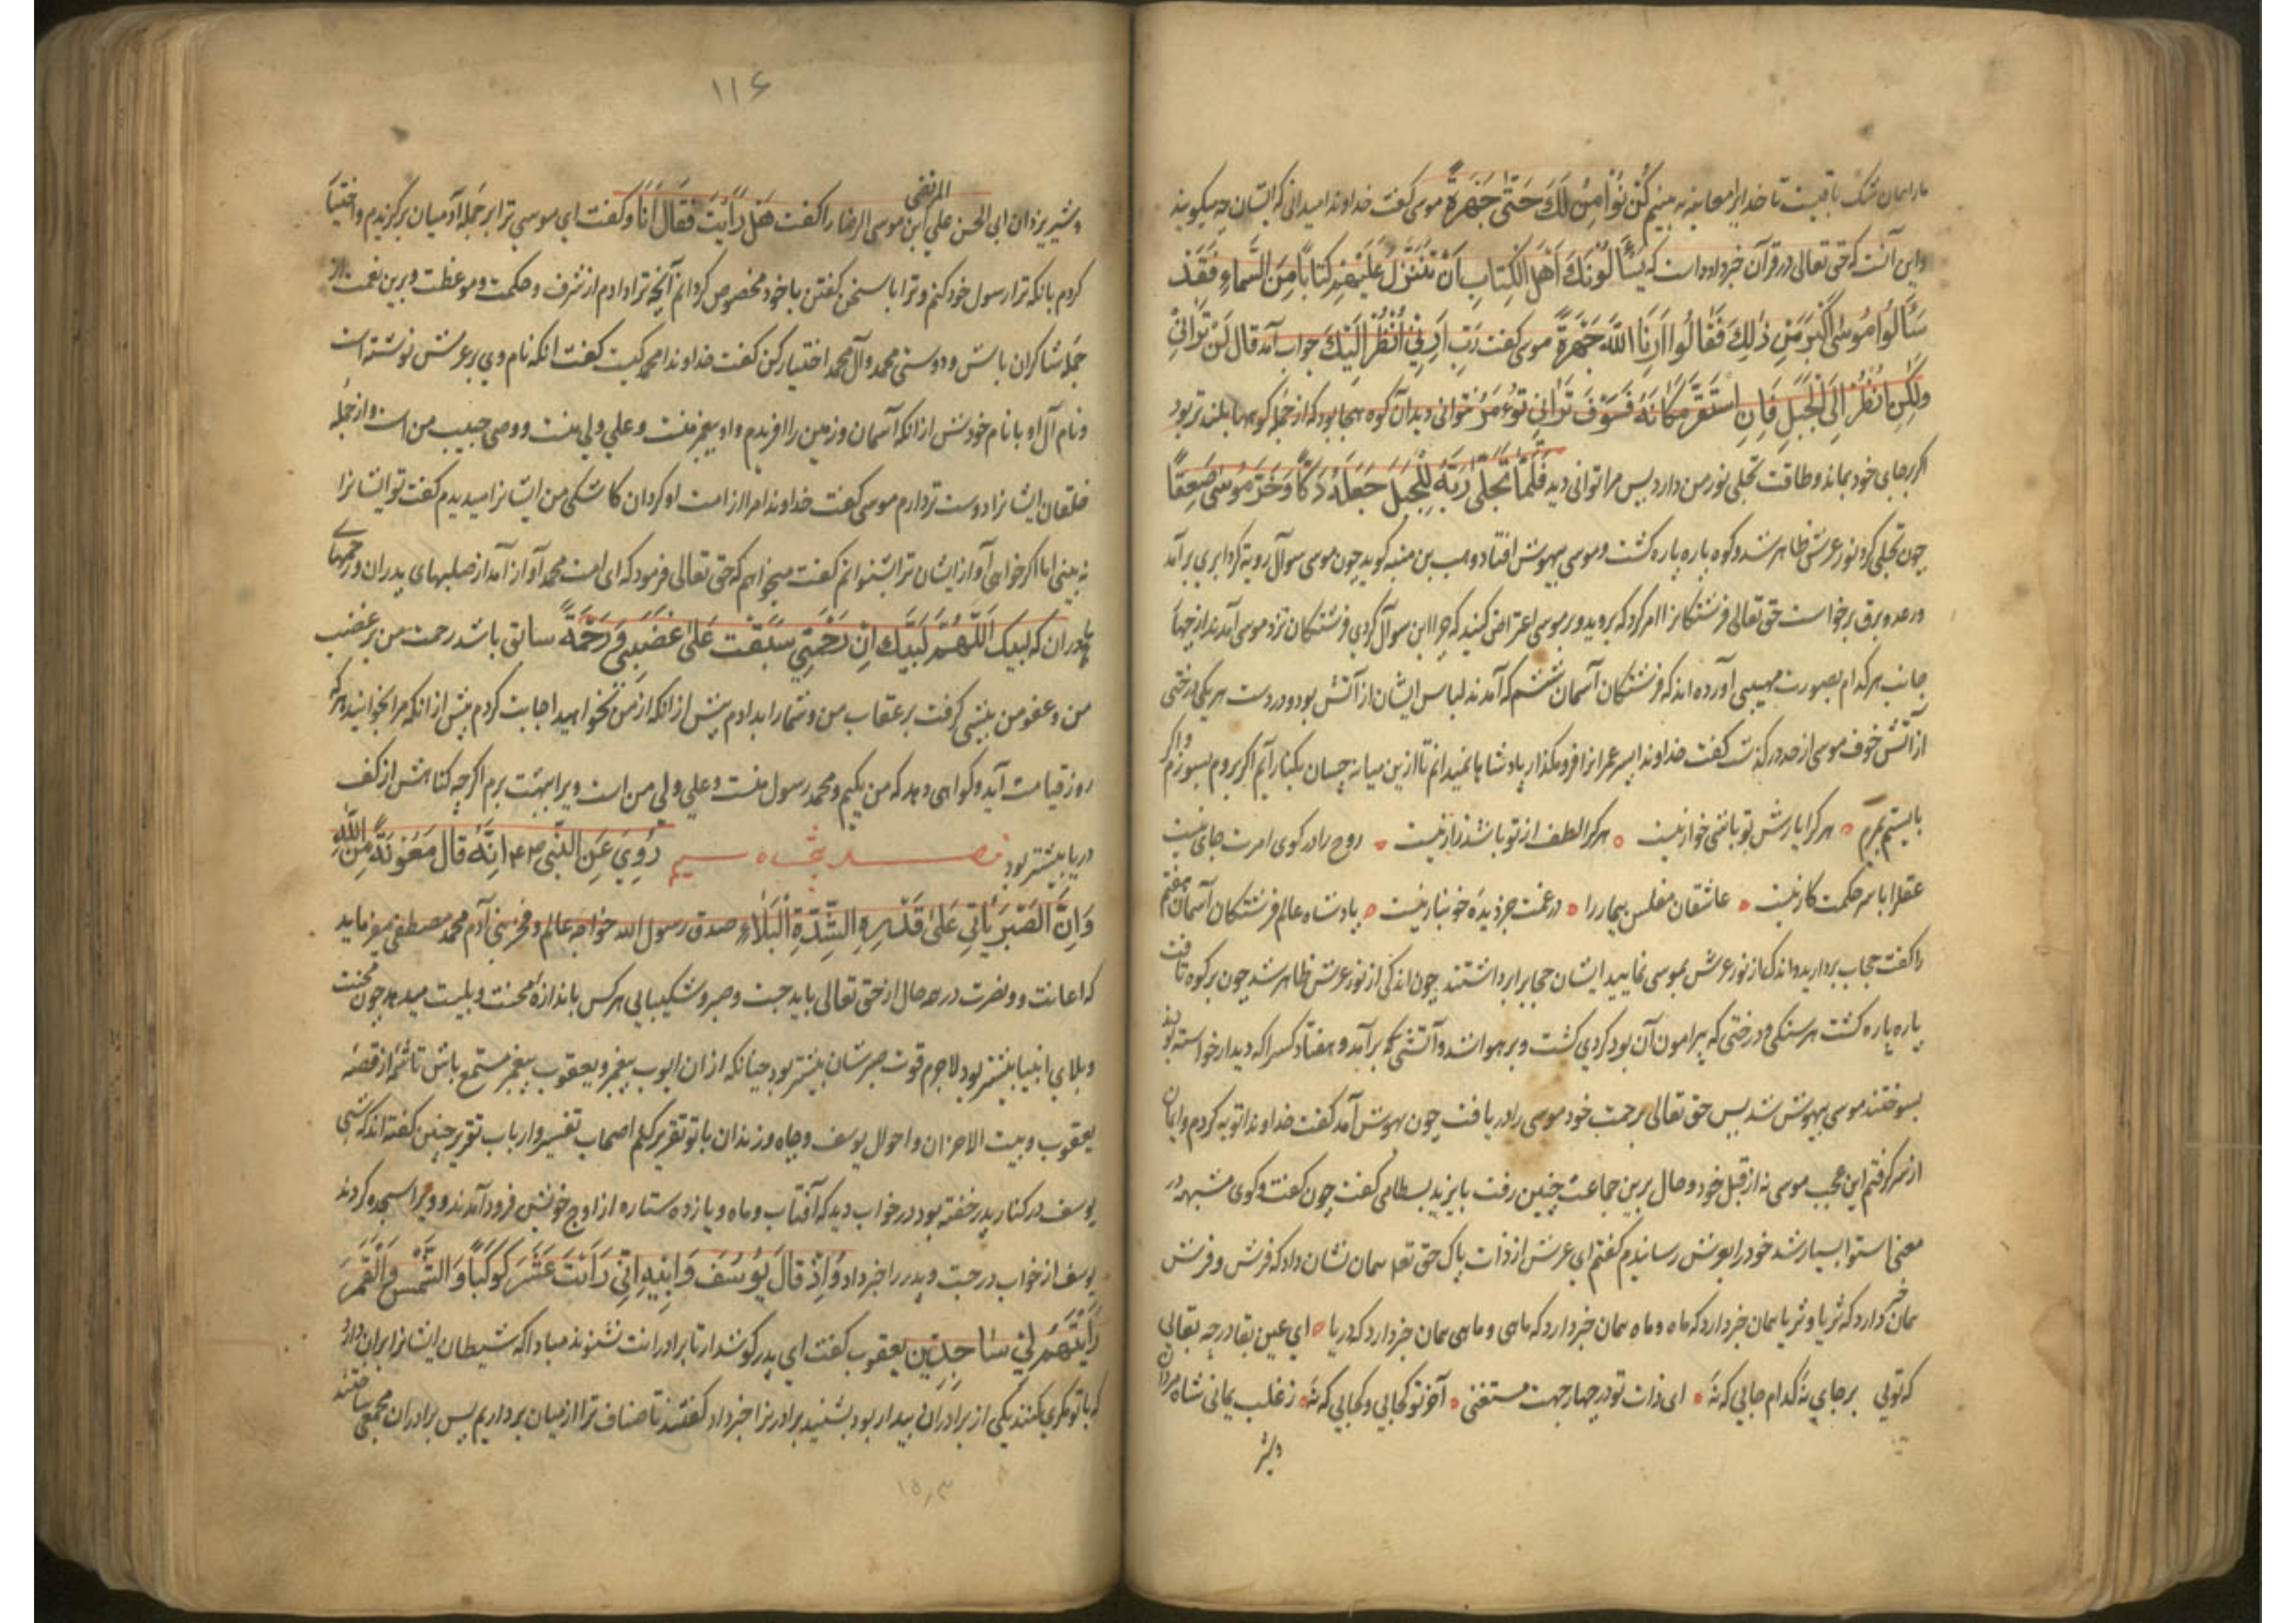 ما را همان شک باقیست تا خدایرا معاینه نه بینیم لَنْ نُؤْمِنَ لَكَ حَتّٰی جَهْرَةً موسی گفت خداوندا میدانی که ایشان چه میگویند
واین آنست که حق تعالی در قرآن خبر داده است که یَسْأَلُونَكَ أَهْلُ الْكِتَابِ أَنْ تُنَزِّلَ عَلَیْهِمْ كِتَابًا مِنَ السَّمَاءِ فَقَدْ
سَأَلُوا مُوسٰی أَكْبَرَ مِنْ ذٰلِكَ فَقَالُوا أَرِنَا اللّٰهَ جَهْرَةً موسی گفت رَبِّ أَرِنِی أَنْظُرْ إِلَیْكَ جواب آمد قَالَ لَنْ تَرَانِی
وَلٰكِنِ انْظُرْ إِلَی الْجَبَلِ فَإِنِ اسْتَقَرَّ مَكَانَهُ فَسَوْفَ تَرَانِی تو مر نتوانی دید آن کوه بود که از جمله کوهها بلندتر بود
اگر برجای خود بماند و طاقت تجلی نور من دارد پس مرا توانی دید فَلَمَّا تَجَلّٰی رَبُّهُ لِلْجَبَلِ جَعَلَهُ دَكًّا وَخَرَّ مُوسٰی صَعِقًا
چون تجلی کرد نور عرش ظاهر شد و کوه پاره پاره گشت و موسی بیهوش افتاد وهب بن منبه گوید چون موسی سوآل رویة کرد ابری برآمد
و رعد و برق برخواست حق تعالی فرشتگانرا امر کرد که بروید و بر موسی اعتراض کنید که چرا این سوآل کردی فرشتگان نزد موسی آمدند از چهار
جانب هر کدام بصورت مهیبی آورده اند که فرشتگان آسمان ششم که آمدند لباس ایشان از آتش بود و در دست هر یکی درختی
از آتش خوف موسی از حد در گذشت گفت خداوندا پسر عمرانرا فرو مگذار پادشاها نمیدانم تا ازین میانه چسان بکنار آیم اگر بروم بسوزم و اگر
بایستم بمیرم هر کرا یارش تو باشی خوار نیست هر کرا لطف از تو باشد زار نیست روح را در کوی امرت جای نیست
عقل را با سر حکمت کار نیست عاشقان مفلس بیچاره را در غمت جز دیده خونبار نیست پادشاه عالم فرشتگان آسمان هفتم
را گفت حجاب بردارید و اندک از نور عرش بموسی نمایید ایشان حجابرا برداشتند چون اندکی از نور عرش ظاهر شد چون بر کوه تافت
پاره پاره گشت هر سنگی و درختی که پیرامون آن بود گردی گشت و بر هوا شد و آتشی برآمد و هفتاد کسرا که دیدار خواسته بودند
بسوختند موسی بیهوش شد پس حق تعالی برحمت خود موسی را دریافت چون بهوش آمد گفت خداوندا توبه کردم و ایمان
از سر گرفتم این عجب موسی نه از قبل خود و حال برین جماعت چنین رفت بایزید بسطامی گفت چون گفت و گوی مشبهه در
معنی استوا بسیار شد خود را بعرش رسانیدم گفتم ای عرش از ذات پاک حق تعالی همان نشان داد که فرش و فرش
همان خبر دارد که ثریا و ثریا همان خبر دارد که ماه و ماه همان خبر دارد که ماهی و ماهی همان خبر دارد که دریا ای عین بقا در چه بقایی
که توئی برجای نه کدام جایی که نه ای ذات تو در چهار جهت مستغنی آخر تو کجایی و کجایی که نه ز غلب یمانی شاه مردان
و شیر
۱۱۶
المرتضی
و شیر یزدان ابی الحسن علی ابن موسی الرضا را گفت هَلْ رَأَیْتَ فَقَالَ أَنَا و گفت ای موسی ترا بر جمله آدمیان برگزیدم و اختیار
کردم بانکه ترا رسول خود کنم و ترا با سخن گفتن با خود مخصوص کردانم آنچه ترا دادم از شرف و حکمت و موعظت و برین نعمت از
جمله شاکران باش و دوستی محمد و آل محمد اختیار کن گفت خداوندا محمد کیست گفت آنکه نام وی بر عرش نوشته است
و نام آل او با نام خود پیش از انکه آسمان و زمین را آفریدم و او پیغمبر منست و علی ولی منست و وصی حبیب من است و از جمله
خلقان ایشانرا دوست تر دارم موسی گفت خداوندا مرا از امت او گردان کاشکی من ایشانرا میدیدم گفت تو ایشانرا
نه بینی اما اگر خواهی آواز ایشان ترا بشنوانم گفت میخواهم که حق تعالی فرمود که ای امت محمد آواز آمد از صلبهای پدران و رحمهای
مادران که لبیک اللّٰهُمَّ لَبَّیْكَ إِنَّ رَحْمَتِی سَبَقَتْ عَلٰی غَضَبِی وَرَحْمَةً سابق باشد رحمت من بر غضب
من و عفو من پیشی گرفت بر عقاب من و شما را بدادم پیش از انکه از من بخواهید اجابت کردم پیش از انکه مرا بخوانید هر که
روز قیامت آید و گواهی دهد که من یکیم و محمد رسول منست و علی ولی من است ویرا ببهشت برم اگرچه گناهش از کف
دریا بیشتر بود فصل پنجاه سیم رُوِیَ عَنِ النَّبِی أَنَّهُ قَالَ مَعُونَةً مِنَ اللّٰهِ
وَإِنَّ الصَّبْرَ یَأْتِی عَلٰی قَدْرِ الشِّدَّةِ الْبَلَاءِ صدق رسول الله خواجه عالم و فخر بنی آدم محمد مصطفی میفرماید
که اعانت و نصرت در همه حال از حق تعالی باید جست و صبر و شکیبایی هر کس باندازه محنت و بلیت میدهد چون محنت
و بلای انبیا بیشتر بود لاجرم قوت صبرشان بیشتر بود چنانکه از ان ایوب پیغمبر و یعقوب پیغمبر مستمع باش تا شمه از قصه
یعقوب و بیت الاحزان و احوال یوسف و چاه و زندان با تو تقریر کنم اصحاب تفسیر و ارباب تقریر چنین گفته اند که شبی
یوسف در کنار پدر خفته بود در خواب دید که آفتاب و ماه و یازده ستاره از اوج خویش فرود آمدند و ویرا سجده کردند
یوسف از خواب درجست و پدر را خبر داد وَإِذْ قَالَ یُوسُفُ وَابْنِهِ إِنِّی رَأَیْتُ عَشَرَ كَوْكَبًا وَالشَّمْسَ وَالْقَمَرَ
رَأَیْتُهُمْ لِی سَاجِدِینَ یعقوب گفت ای پدر گوشدار تا برادرانت نشنوند مبادا که شیطان ایشانرا بران دارد
که با تو مکری کنند یکی از برادران بیدار بود بشنید برادرانرا خبر داد گفتند تا ترا از میان برداریم پس برادران مجمعی ساختند